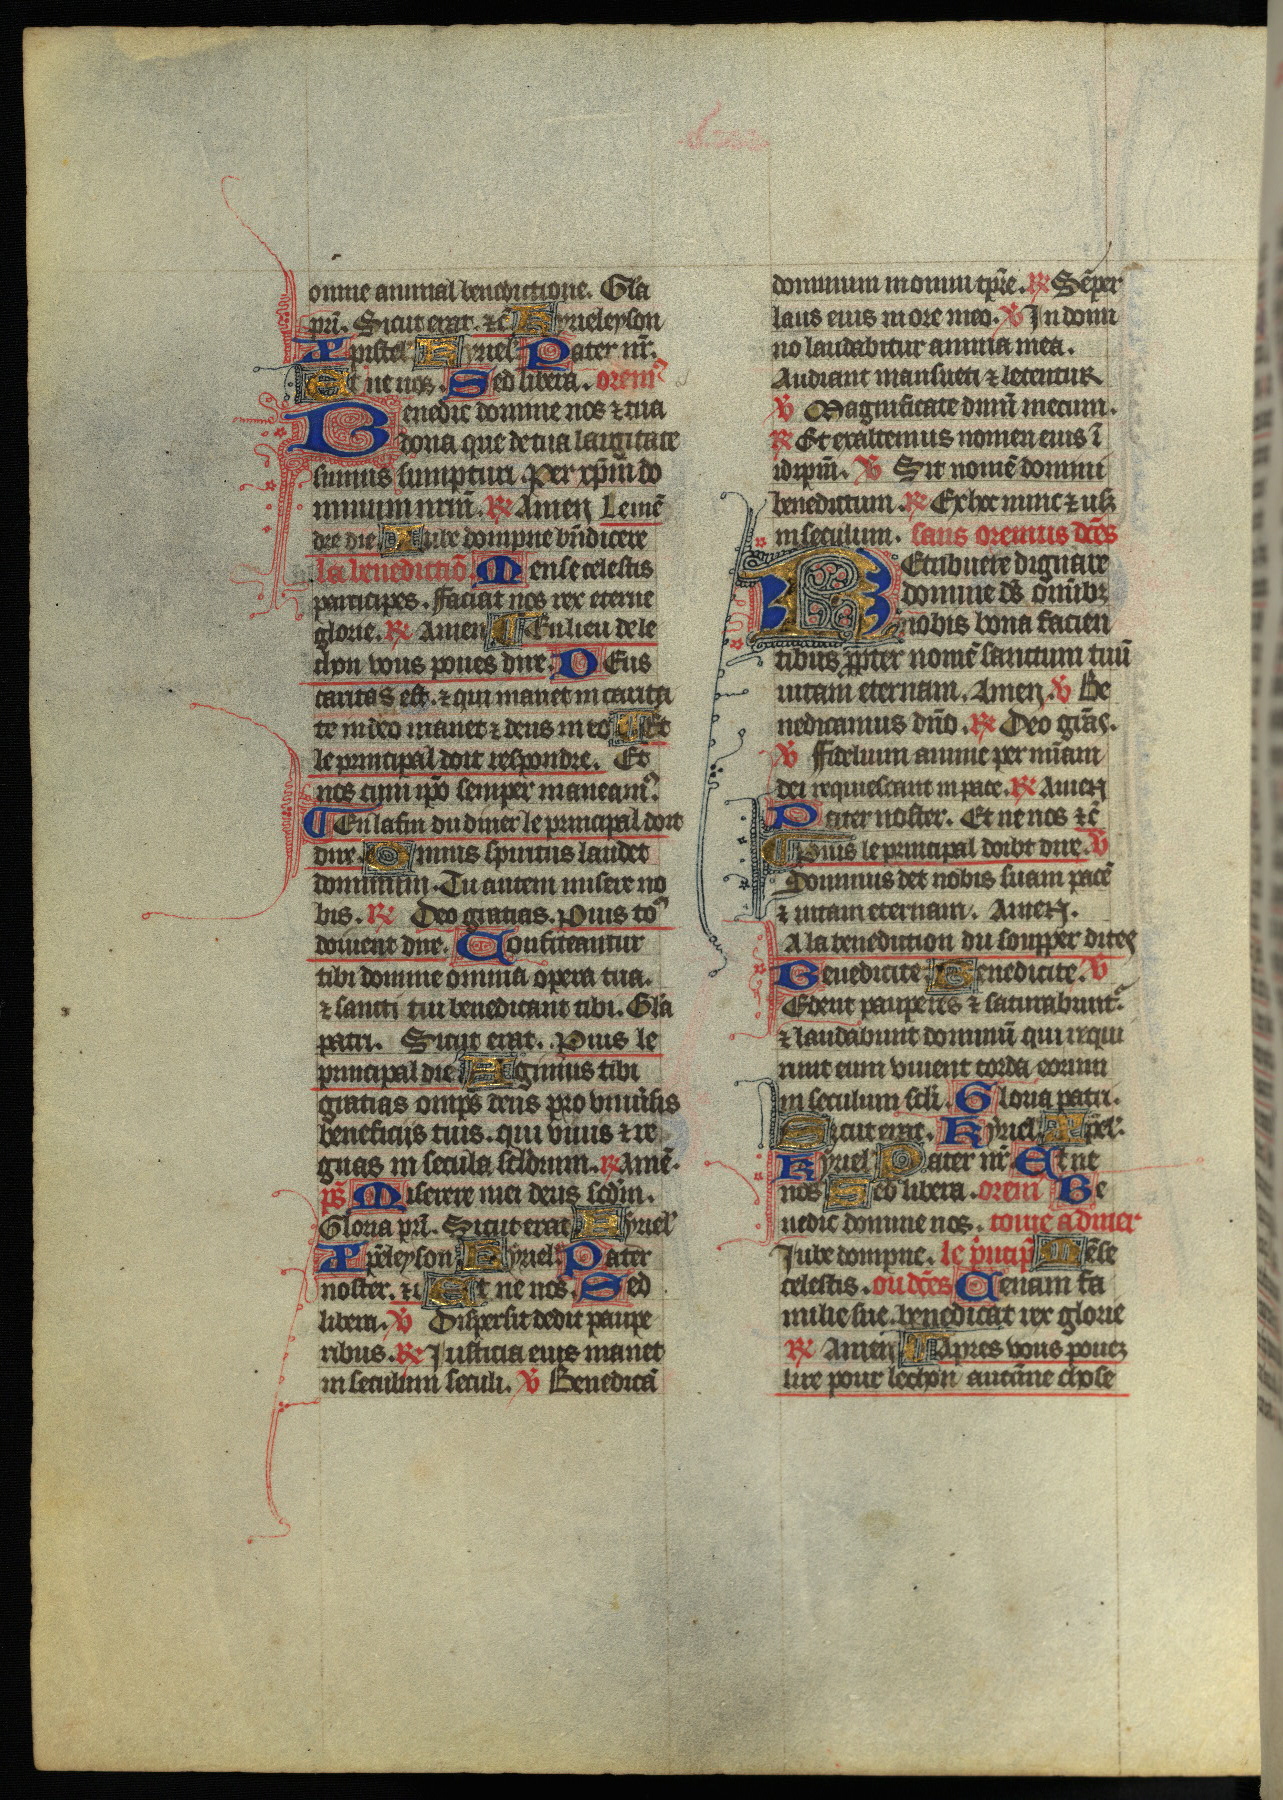 omne animal benedictione. Gła
pr̃i. Sicut erat. ⁊c̃ Kyrieleyson
Xp̄isteł Kyrieł. Pater nr̃.
Et ne nos. Sed libera. oremꝰ
Benedic domine nos ⁊ tua
dona que de tua largitate
sumus sumpturi. Per xp̄m̄ do
minum nr̃m̄. ℟ Amen Le mẽ
dre die Iube dompne bn̄dicere
la benedictiõ. Mense celestis
participes. faciat nos rex eterne
glorie. ℟ Amen ¶ En lieu de le
chon vous poues dire. Deus
caritas est. ⁊ qui manet in carita
te in deo manet ⁊ deus in eo ¶ Et
le principal doit respondre. Et
nos cum ip̄o semper maneamꝰ.
¶ En la fin du diner le principal doit
dire. Omnis spiritus laudet
dominum. Tu autem misere no
bis. ℟ Deo gratias. Puis toꝰ
doiuent dire. Confiteantur
tibi domine omnia opera tua.
⁊ sancti tui benedicant tibi. Gła
patri. Sicut erat. Puis le
principal die Agimus tibi
gratias omp̄s deus pro vniũsis
beneficijs tuis. qui viuis ⁊ re
gnas in secula sclorum. ℟ Amẽ.
ps̄ Miserere mei deus scd̄m.
Gloria pr̃i. Sicut erat Kyrieł
Xp̄eleyson Kyrieł. Pater
noster. ⁊c̃ Et ne nos. Sed
libera. ℣ Dispersit dedit paupe
ribus. ℟ Iusticia eius manet
in seculum seculi. ℣ Benedicã
dominum in omni tp̄re. ℟ Sẽper
laus eius in ore meo. ℣ In domi
no laudabitur anima mea.
Audiant mansueti ⁊ letentur
℣ Magnificate dnm̄ mecum.
℟ Et exaltemus nomen eius ĩ
idip̄m̄. ℣ Sit nomẽ domini
benedictum. ℟ Ex hoc nunc ⁊ usꝫ
in seculum. sans oremus dc̃es
Retribuere dignare
domine ds̄ omĩbꝫ
nobis bona facien
tibus ꝓpter nomẽ sanctum tuũ
uitam eternam. Amen. ℣ Be
nedicamus dño. ℟ Deo gr̃as.
℣ Fidelium anime per mĩam
dei requiescant in pace. ℟ Amen
Pater noster. Et ne nos ⁊c̃
¶ Puis le principal doibt dire. ℣
Dominus det nobis suam pacẽ
⁊ uitam eternam. Amen.
A la benediction du soupper dites
Benedicite. Benedicite. ℣
Edent pauperes ⁊ saturabunt᷑
⁊ laudabunt dominũ qui requi
runt eum viuent corda eorum
in seculum scłi. Gloria patri.
Sicut erat. Kyrieł. Xp̄eł.
Kyrieł Pater nr̃. Et ne
nos Sed libera. orem̃ Be
nedic domine nos. come a diner
Iube dompne. le p̃ncip̃ Mẽse
celestis. ou dc̃es Cenam fa
milie sue. benedicat rex glorie
℟ Amen ¶ Apres vous pouez
lire pour lechon aucũne chose